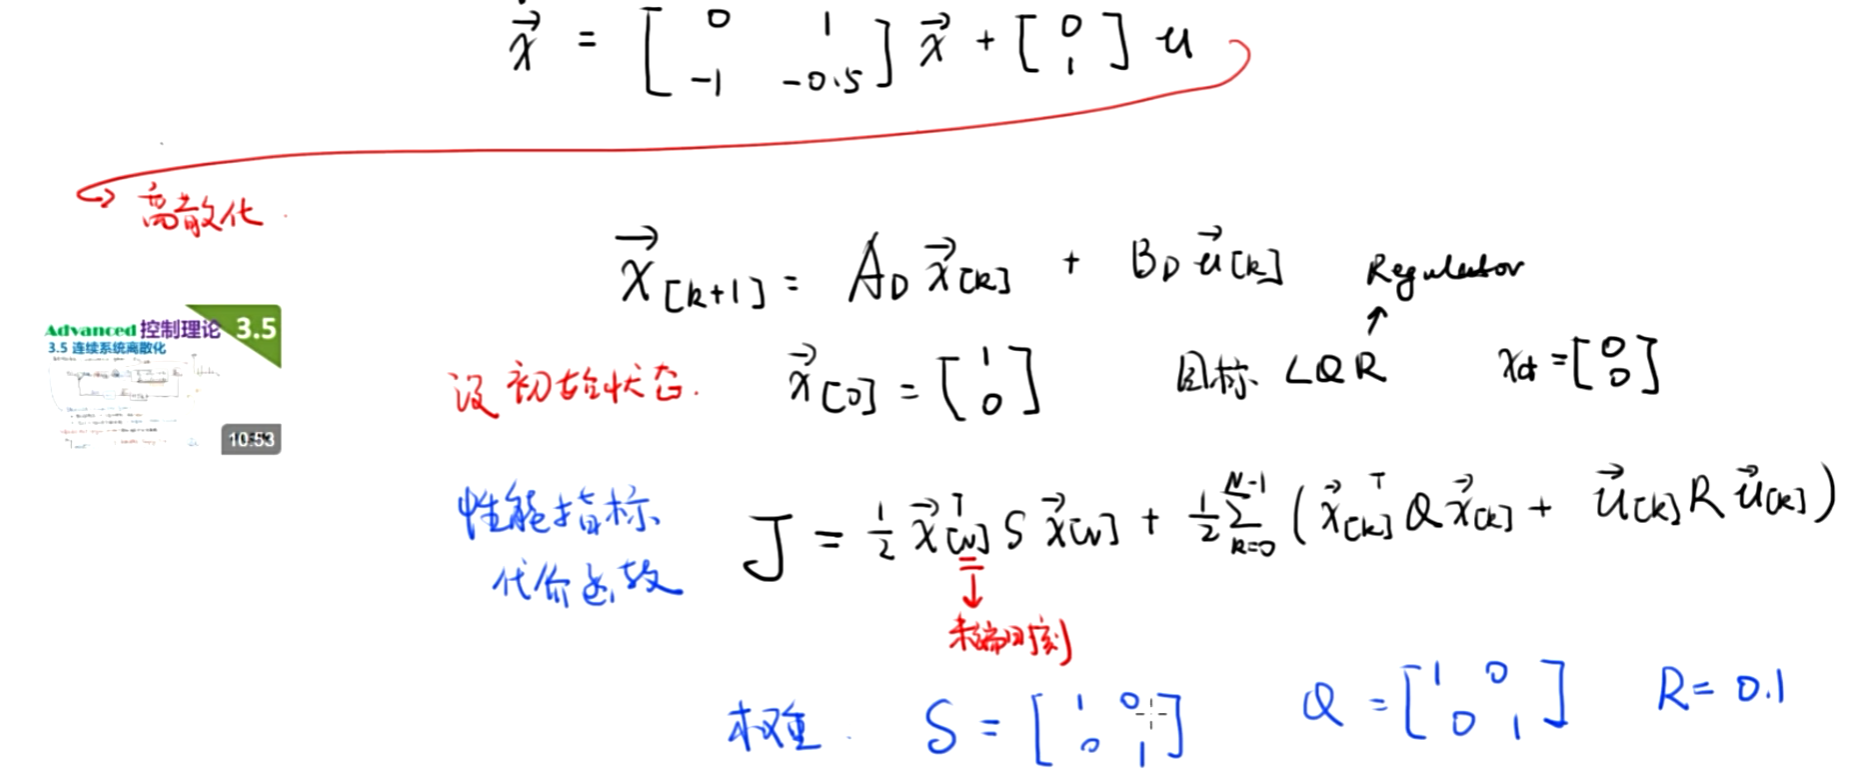 ẋ⃗ = [0 1; -1 -0.5] x⃗ + [0; 1] u
离散化.
x⃗[k+1] = A_D x⃗[k] + B_D u⃗[k]
Regulator
Advanced 控制理论 3.5
3.5 连续系统离散化
10:53
设 初始状态. x⃗[0] = [1; 0] 目标 LQR x_d = [0; 0]
性能指标
代价函数
J = 1/2 x⃗[N]^T S x⃗[N] + 1/2 Σ_{k=0}^{N-1} (x⃗[k]^T Q x⃗[k] + u⃗[k] R u⃗[k])
末端时刻
权重. S = [1 0; 0 1] Q = [1 0; 0 1] R = 0.1